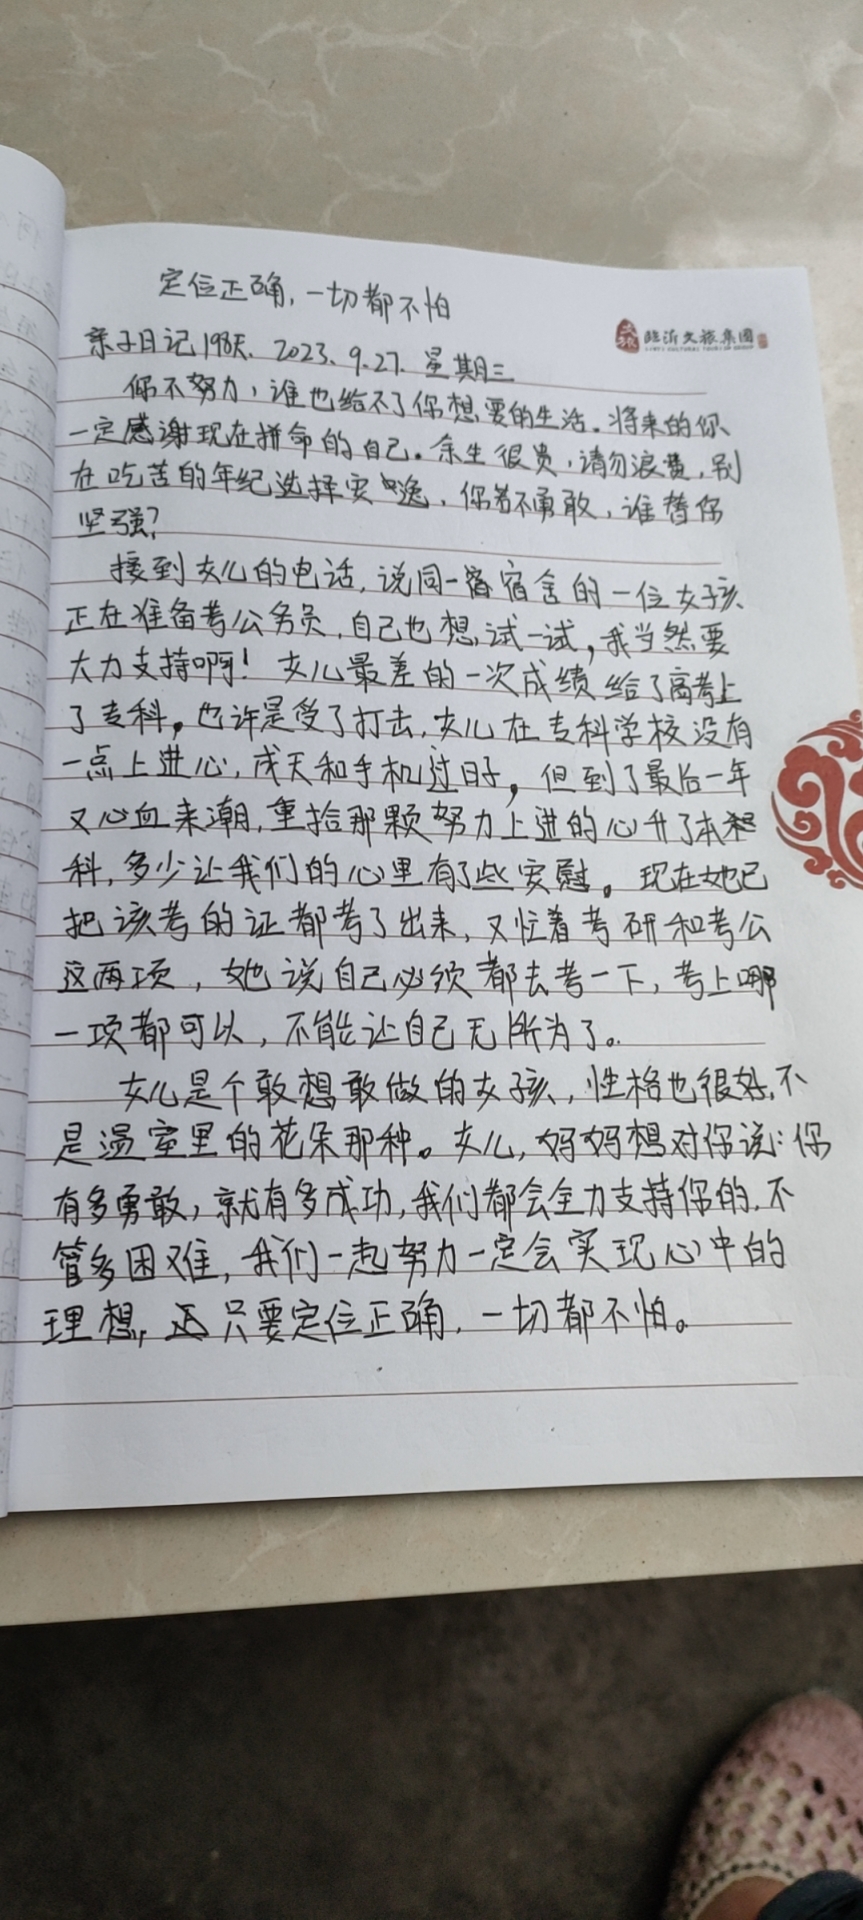 定位正确，一切都不怕
文旅 临沂文旅集团
LINYI CULTURAL TOURISM GROUP
亲子日记198天. 2023. 9.27. 星期三
你不努力，谁也给不了你想要的生活。将来的你、
一定感谢现在拼命的自己。余生很贵，请勿浪费，别
在吃苦的年纪选择安逸，你若不勇敢，谁替你
坚强？
接到女儿的电话，说同一宿舍的一位女孩
正在准备考公务员，自己也想试一试，我当然要
大力支持啊！女儿最差的一次成绩给了高考上
了专科，也许是受了打击，女儿在专科学校没有
一点上进心，成天和手机过日子，但到了最后一年
又心血来潮，重拾那颗努力上进的心升了本
科，多少让我们的心里有了些安慰。现在她已
把该考的证都考了出来，又忙着考研和考公
这两项，她说自己必须都去考一下，考上哪
一项都可以，不能让自己无所为了。
女儿是个敢想敢做的女孩，性格也很好，不
是温室里的花朵那种。女儿，妈妈想对你说：你
有多勇敢，就有多成功，我们都会全力支持你的，不
管多困难，我们一起努力一定会实现心中的
理想，只要定位正确，一切都不怕。